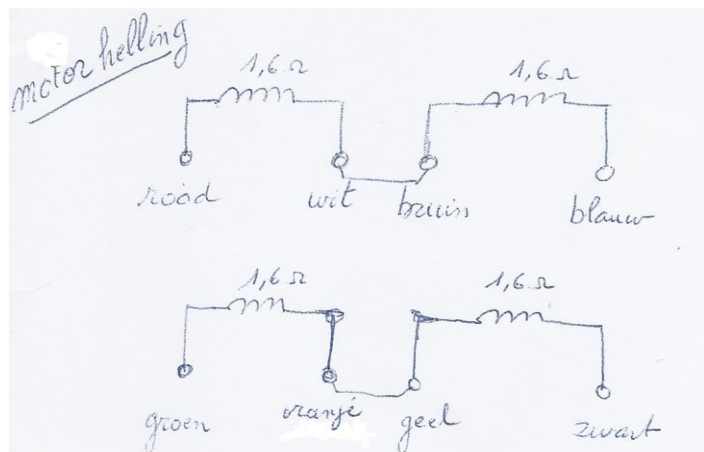 motor helling
1,6 Ω 1,6 Ω
rood wit bruin blauw
1,6 Ω 1,6 Ω
groen oranje geel zwart